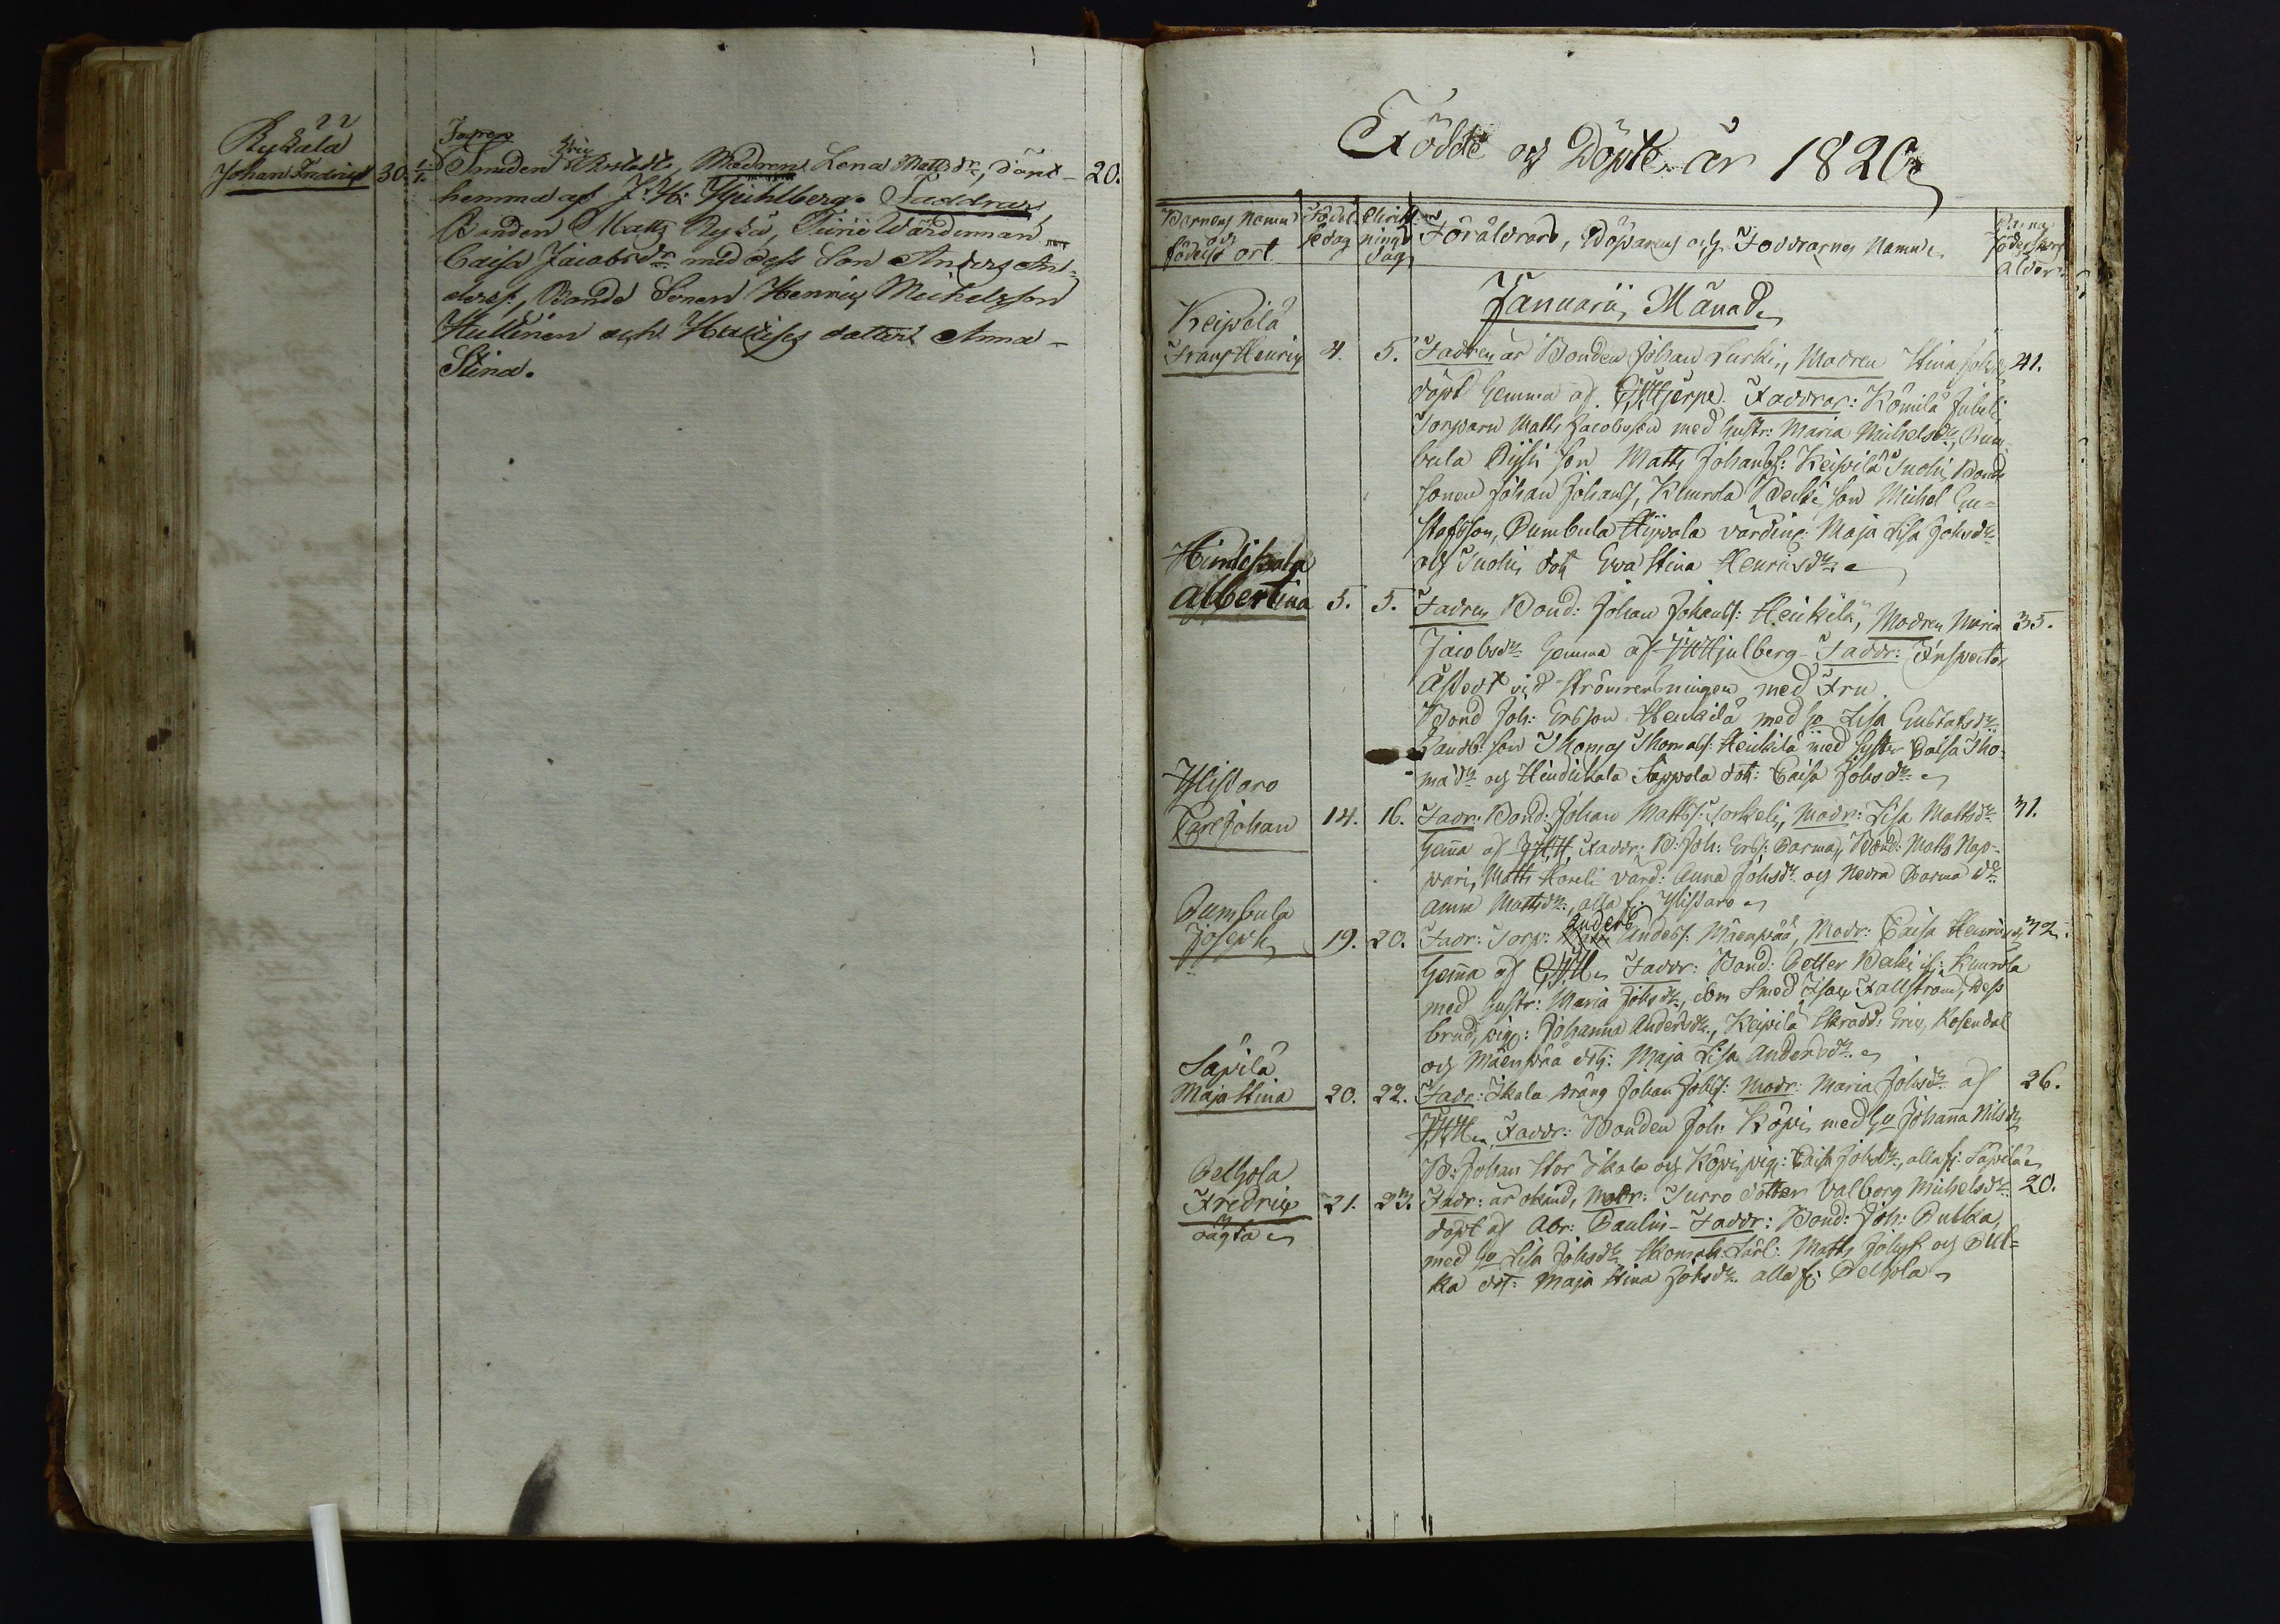 Rykälä
Johan Fredric 30. 1/1. Fadren Smeden Eric Bostedt, Modren Lena Matts dr, döpt 20.
hemma af J. H. Hjuhlberg. Faddrar
Bonden Matts Rykä, Wärdinnan
Caisa Jacobs dr med dess Son Anders An=
derss:, Bonde Sonen Henric Michelsson
Huttinen och dotter Anna
Stina.
Födde och Döpte år 1820
Barnens Namn och födelse ort
Födel se dag
Christ nings dag
Föräldrars, Döparens och Faddrarnes Namn
Barnaföderskans ålder
Januarii Månad
Keipilä
Frans Henric 4. 5. Fadren är Bonden Johan Lurki, Modren Stina Johsdr 41.
döpt hemma af Hjerpe. Faddrar: Kömilä
Torparn Matts Jacobsson med hustr: Maria Michelsdr, Rum-
bula son Matts Johanss: Keipilä Suoli Bonde
sonen Johan Johanss, Knurola Son Michel Gu=
stafsson, Rumbula Hijvola värdin: Maja Lisa Johsdr
och Suoli dotr Eva Stina Henricsdr
Hindikala
Albertina 5. 5. Fadren Bond: Johan Johanss: Heikilä, Modren Maria 35.
Jacobsdr hemma af Hjulberg - Faddr: Inspector
vid Strömrensningen med Fru
Bond Joh: Ericsson Heikilä med ho Lisa Gustafsdr
Bonds: son Thomas Thomass: Heikilä med hustr Caisa Tho-
madr och Hindikala Seppola dotr: Caisa Johsdr
Ylistaro
Carl Johan 14. 16. Fadr: Bond: Johan Mattss: Sorkeli, Modr: Lisa Mattsdr 31.
hema af JHH, Faddr: B: Joh: Erss: Parma, Bond: Matts Nap-
pari, Matts Horeli värd: Anna Johsdr och Nedra Parma dr
Anna Mattsdr, alla f: Ylistaro
Rumbula
Joseph 19. 20. Fadr: Torp: Anders Anderss: Mäenpää, Modr: Caisa Henricsdr 32.
hema af Faddr: Bond: Petter Pekki f: Knurola
med hustr: Maria Johsdr, ibm Smed Isac Fallström, dess
brud, pig: Johanna Andersdr, Keipilä Skrädd: Eric Rosendal
och Mäenpää dotr: Maja Lisa Andersdr
Säpilä
Maja Stina 20. 22. Fadr: Skala dräng Johan Johss: Modr: Maria Johsdr af 26.
JHH, Faddr: Bonden Joh: Köpi med ho Johana Nilsdr
B: Johan Stor Skala och Köpi pig: Caisa Johsdr, alla f: Säpilä
Peltzola
Fredric 21. 23. Fadr: är okänd, Modr: Turro dotter Valborg Michelsdr 20.
oägta döpt af Abr: Paulin - Faddr: Bond: Joh: Pukka,
med ho Lisa Johsdr Skomak: Lärl: Matts Johss och Puk=
ka dotr: Maja Stina Johsdr alla f: Peltzola